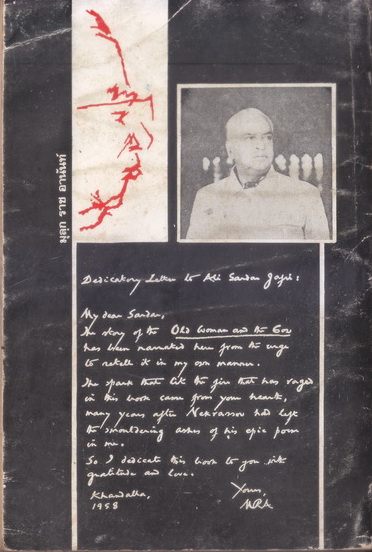 มุลก ราช อานันท์
Dedicatory Letter to Ali Sardar Jafri:
My dear Sardar,
The story of the Old Woman and the Cow
has been narrated here from the urge
to retell it in my own manner.
The spark that lit the fire that has raged
in this book came from your heart,
many years after Nekrassov had left
the smouldering ashes of his epic poem
in me.
So I dedicate this book to you with
gratitude and love.
Khandalla, Yours,
1958 MRA